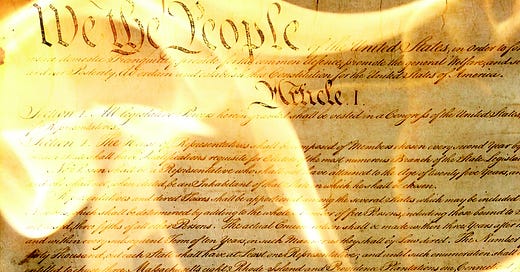 We the People
of the United States, in Order to for
domestic Tranquility, provide for the common defence, promote the general Welfare, and se
and our Posterity, do ordain and establish this Constitution for the United States of America.
Article. I.
Section. 1. All legislative Powers herein granted shall be vested in a Congress of the United States
Representatives.
Section. 2. The House of Representatives shall be composed of Members chosen every second Year by
shall have the Qualifications requisite for Electors of the most numerous Branch of the State Legislat
No Person shall be a Representative who shall not have attained to the Age of twenty five Years, an
and who shall not, when elected, be an Inhabitant of that State in which he shall be chosen.
Representatives and direct Taxes shall be apportioned among the several States which may be included
Numbers, which shall be determined by adding to the whole Number of free Persons, including those bound to
three fifths of all other Persons. The actual Enumeration shall be made within three Years after
and within every subsequent Term of ten Years, in such Manner as they shall by Law direct. The Number
thirty Thousand, but each State shall have at Least one Representative; and until
entitled to chuse Massachusetts eight, Rhode-Island and Providence Plantations one, Connecticut